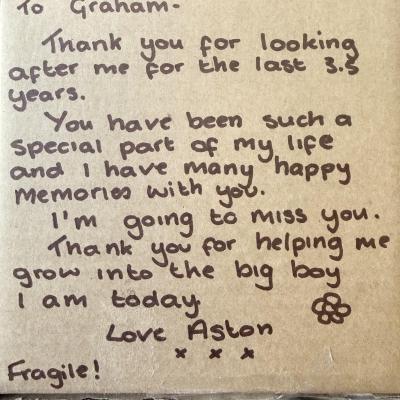 To Graham-
Thank you for looking
after me for the last 3.5
years.
You have been such a
special part of my life
and I have many happy
memories with you.
I'm going to miss you.
Thank you for helping me
grow into the big boy
I am today
Love Aston
x x x
Fragile!